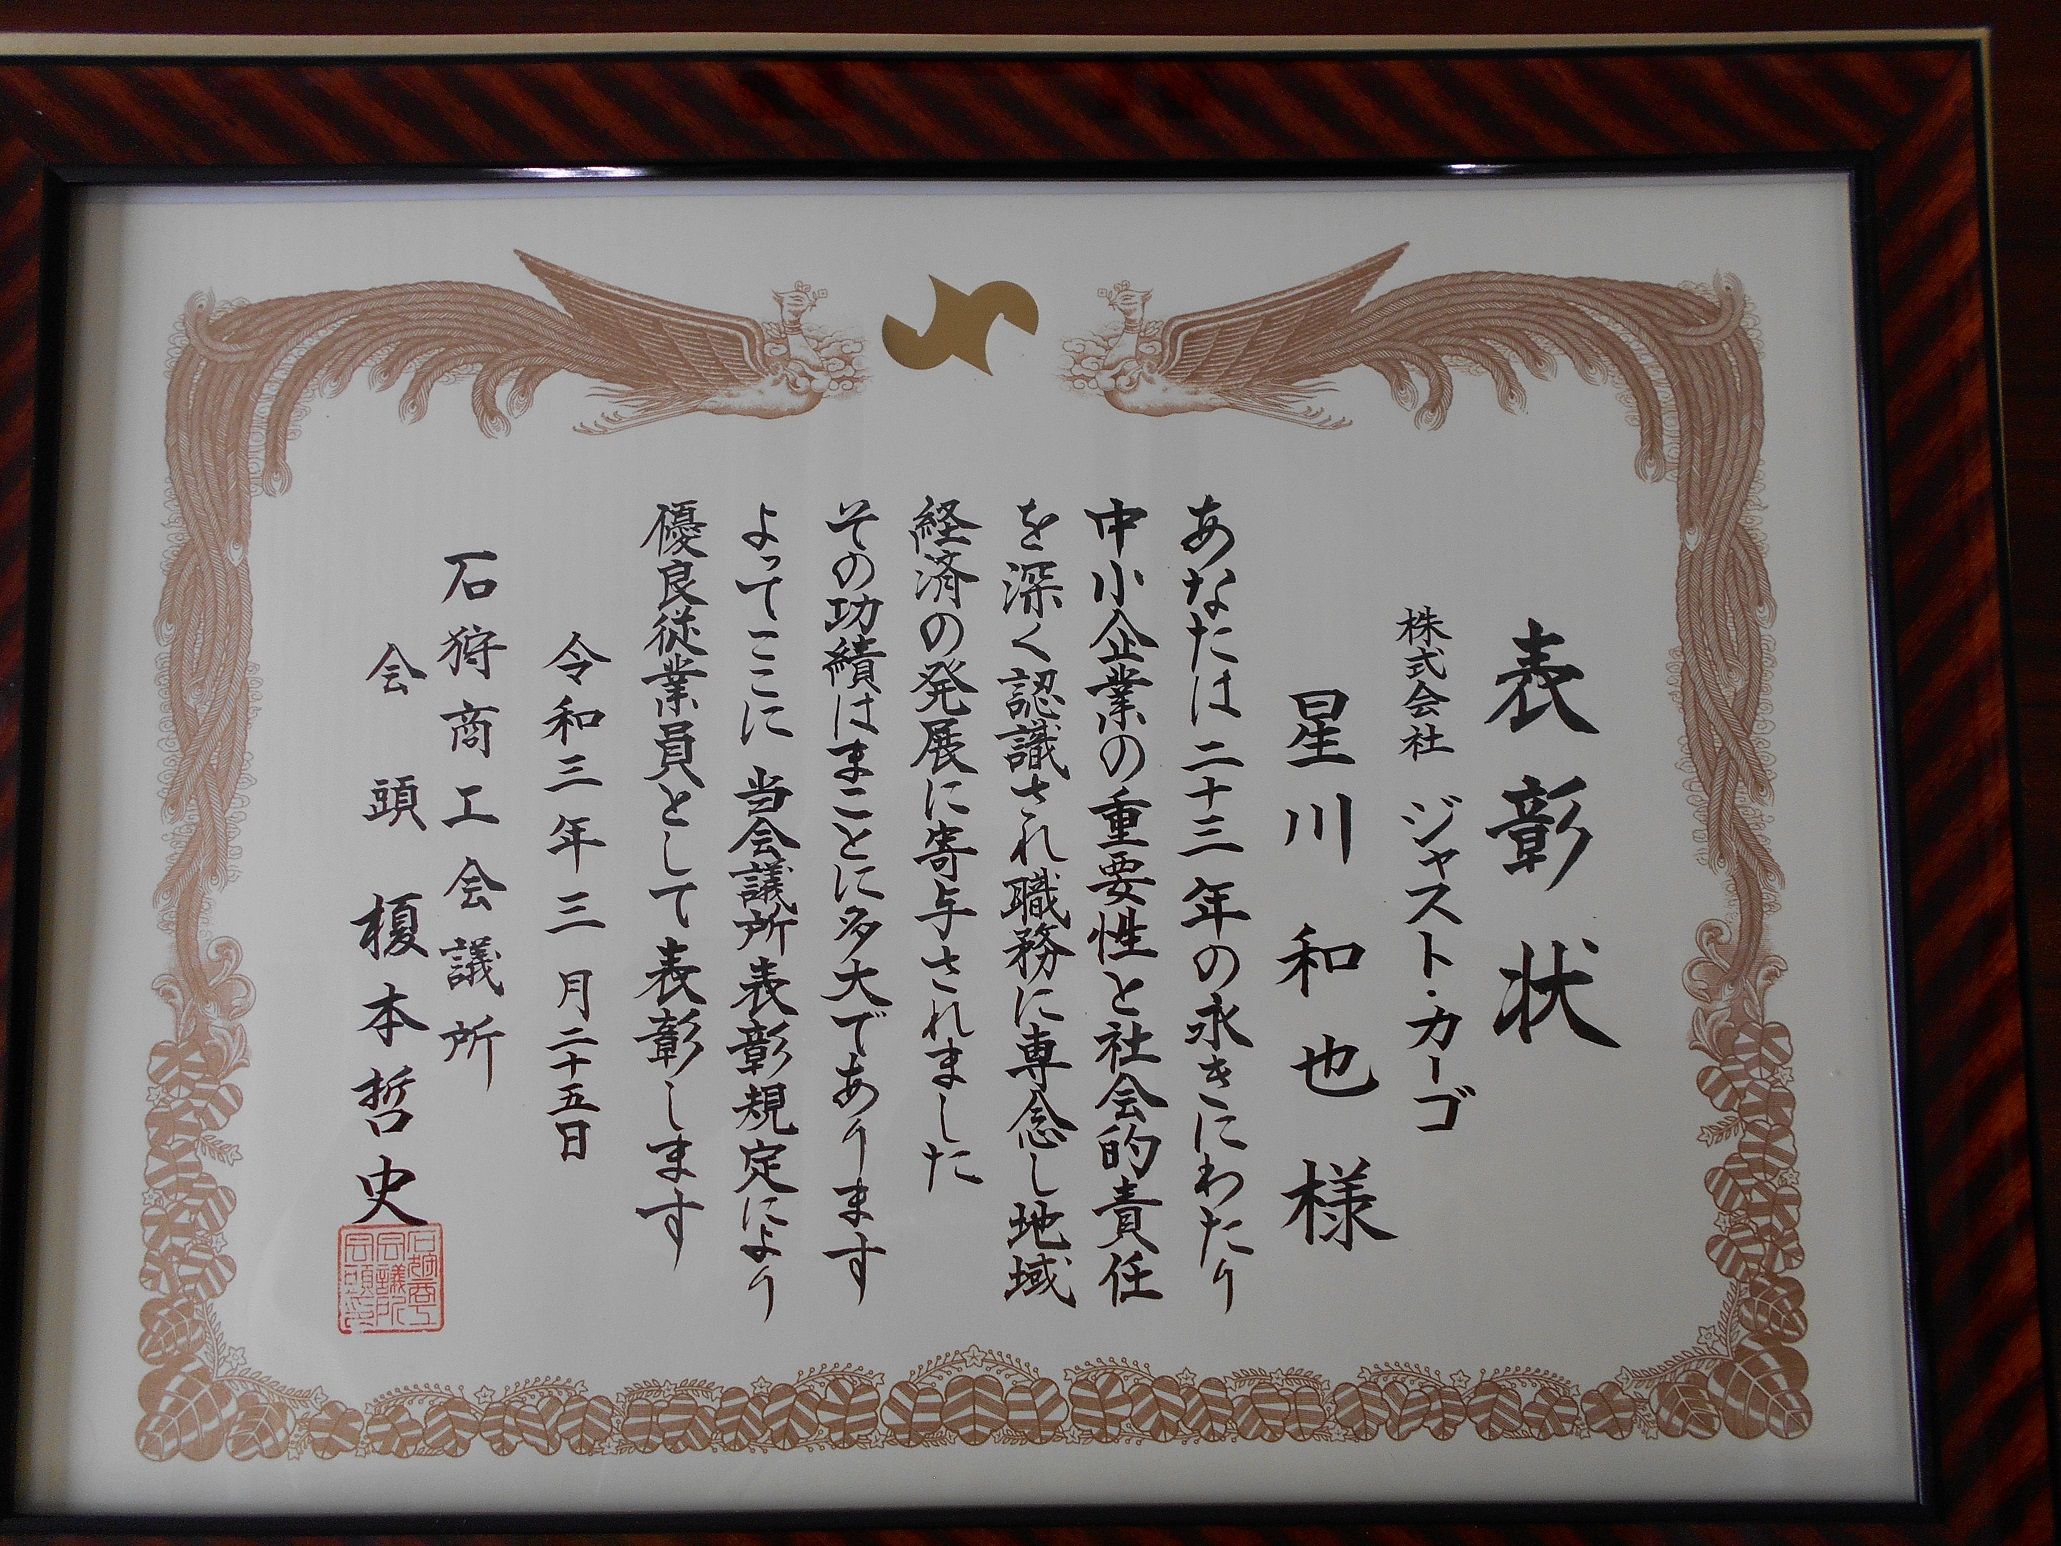 表彰状
株式会社 ジャスト・カーゴ
星川和也様
あなたは二十三年の永きにわたり
中小企業の重要性と社会的責任
を深く認識され職務に専念し地域
経済の発展に寄与されました
その功績はまことに多大であります
よってここに当会議所表彰規定により
優良従業員として表彰します
令和三年三月二十五日
石狩商工会議所
会頭 榎本哲史
石狩商工
会議所
会頭之印